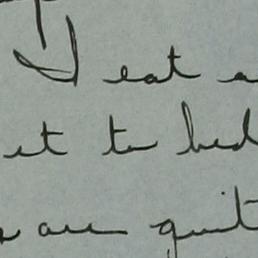 I eat a
et to bed
are quit